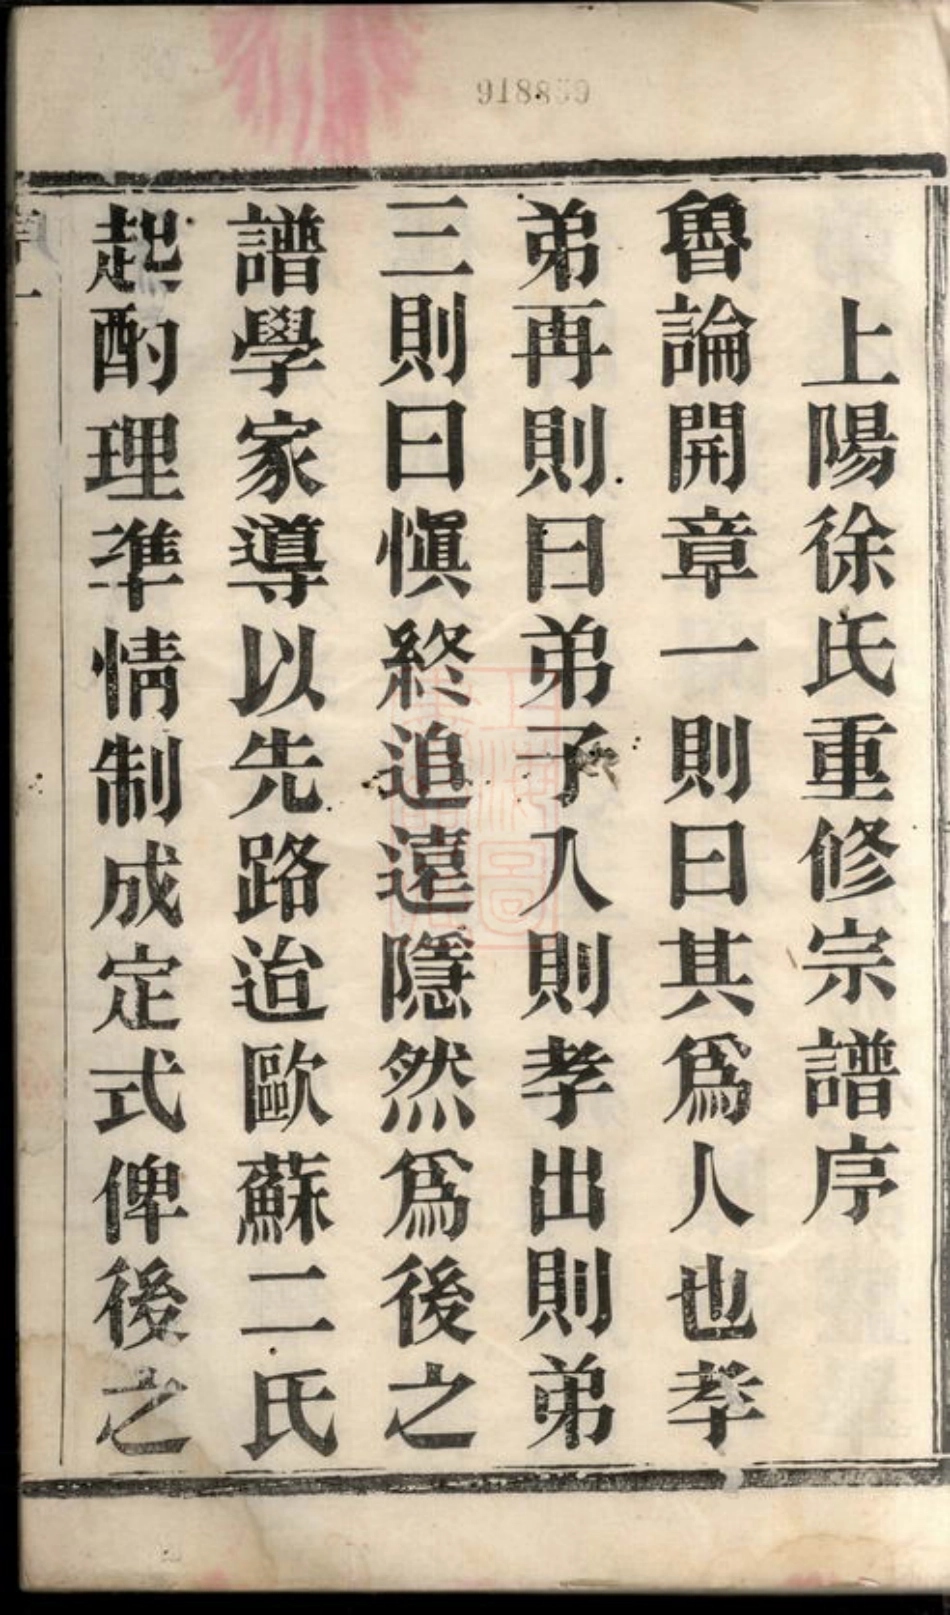 918859
上陽徐氏重修宗譜序
魯論開章一則曰其爲人也孝
弟再則曰弟子入則孝出則弟
三則曰愼終追遠隱然爲後之
譜學家導以先路迨歐蘇二氏
起酌理準情制成定式俾後之